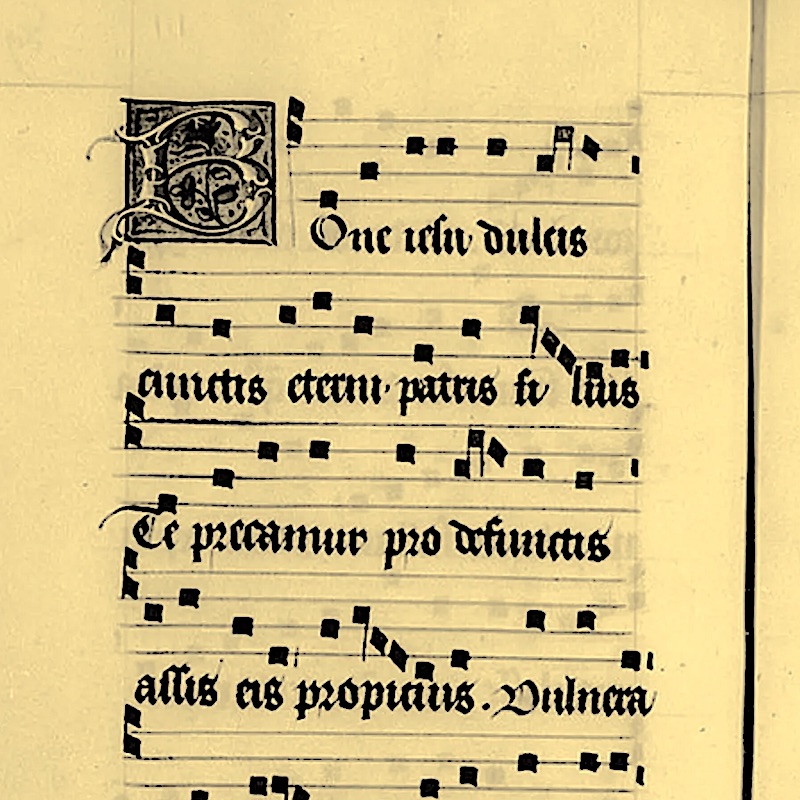 BOne iesu dulcis
cunctis eterni patris fi lius
Te precamur pro defunctis
assis eis propicius. Vulnera